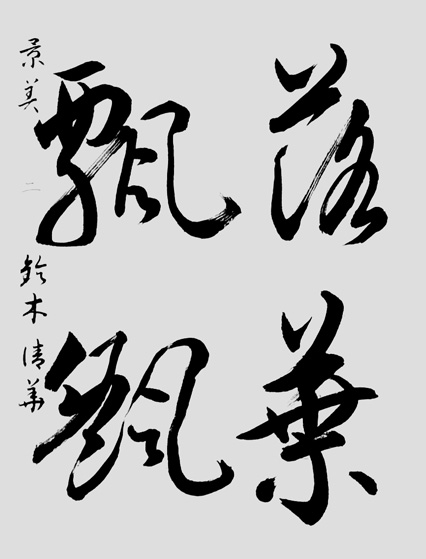 落葉
飄颻
景美 二 鈴木清華